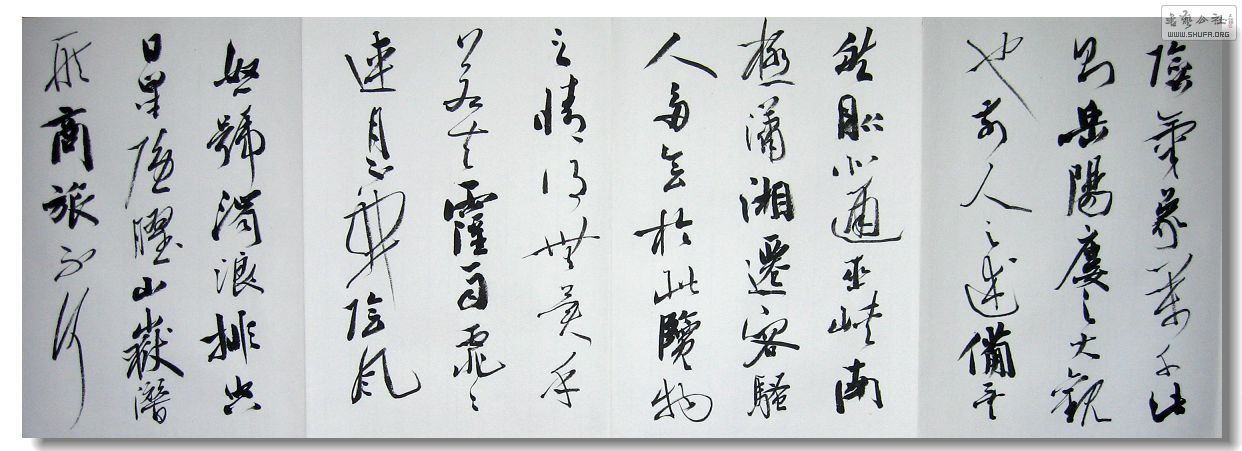 陰氣象萬千此
則岳陽樓之大觀
也前人之述備矣
然則北通巫峽南
極瀟湘遷客騷
人多會於此覽物
之情得無異乎
若夫霪雨霏〻
連月不開陰風
怒號濁浪排空
日星隱曜山嶽潛
形商旅不行
書藝公社
WWW.SHUFA.ORG